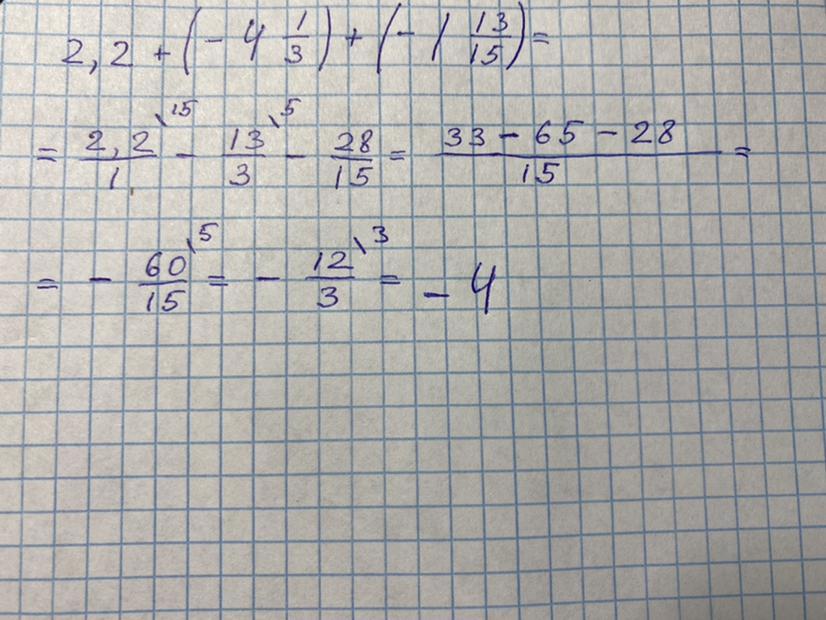 2,2 + (- 4 1/3) + (- 1 13/15) =
= 2,2/1 \15 - 13/3 \5 - 28/15 = 33 - 65 - 28/15 =
= - 60/15 \5 = - 12/3 \3 = - 4